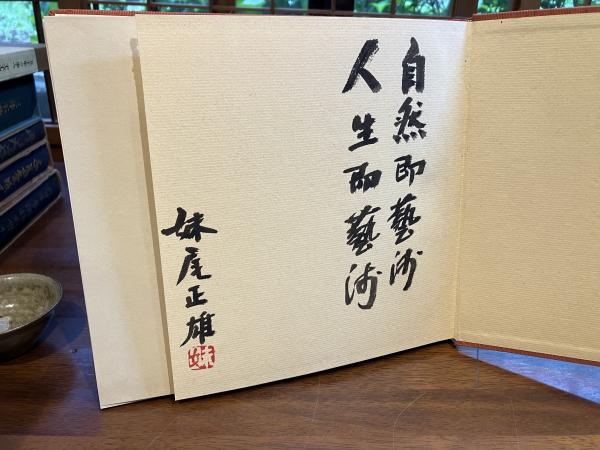 自然即藝術
人生即藝術
妹尾正雄
妹